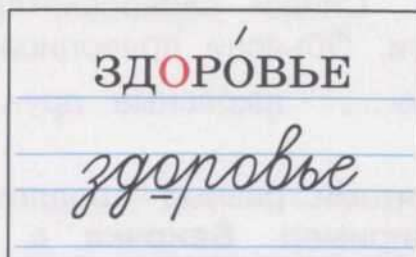 ЗДОРО́ВЬЕ
здоровье